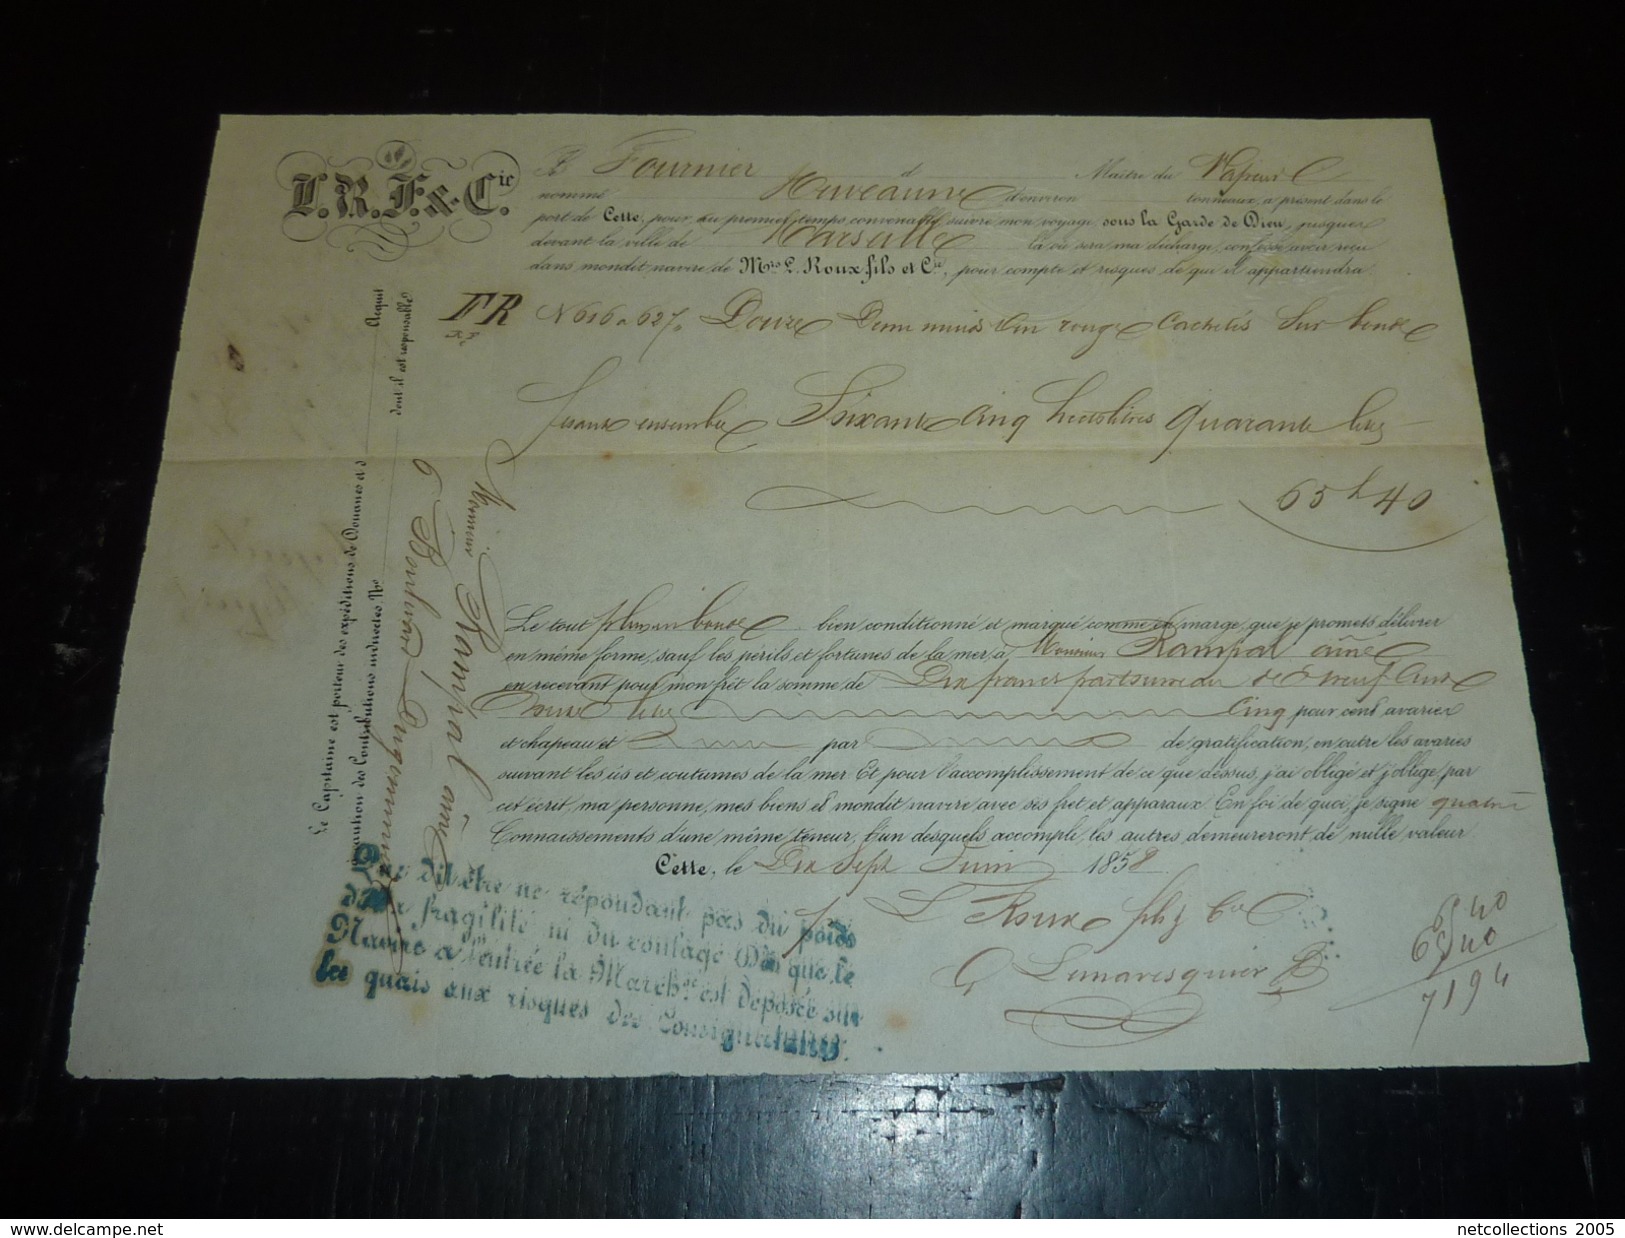 L.R.F. & Cie
Je Fournier d Maître du Vapeur
nommé Huveaune d'environ tonneaux, à présent dans le
port de Cette, pour du premier temps convenable suivre mon voyage, sous la Garde de Dieu, jusques
devant la ville de Marseille là où sera ma décharge, confesse avoir reçu
dans mondit navire de Mrs L. Roux fils et Cie, pour compte et risques de qui il appartiendra
FR N 616 a 627 Douze Demi muids Vin rouge Cachetés Sur bonde
jusant ensemble Soixante Cinq hectolitres quarante litres
65 h 40
Le tout plein bonde bien conditionné et marqué comme en marge, que je promets délivrer
en même forme, sauf les périls et fortunes de la mer, à Monsieur Rampal ainé
en recevant pour mon frèt la somme de Dix francs par
Cinq pour cent avaries
et chapeau et par de gratification, en outre les avaries
suivant les us et coutumes de la mer. Et pour l'accomplissement de ce que dessus, j'ai obligé et j'oblige, par
cet écrit, ma personne, mes biens et mondit navire avec ses fret et apparaux. En foi de quoi, je signe quatre
Connaissements d'une même teneur, l'un desquels accompli, les autres demeureront de nulle valeur
Cette, le Dix Sept Juin 1858
p L Roux fils & Cie
65 40
65 40
719 4
Le Capitaine est porteur des expéditions de Douanes et d Acquit
à caution des Contributions indirectes No dont il est responsable
Monsieur Rampal ainé
6 Boulevard
Que dit être ne répondant pas du poids
de la fragilité ni du coulage Dès que le
Navire a l'entrée la Marchse est déposée sur
les quais aux risques des Consignataires.
www.delcampe.net
netcollections 2005